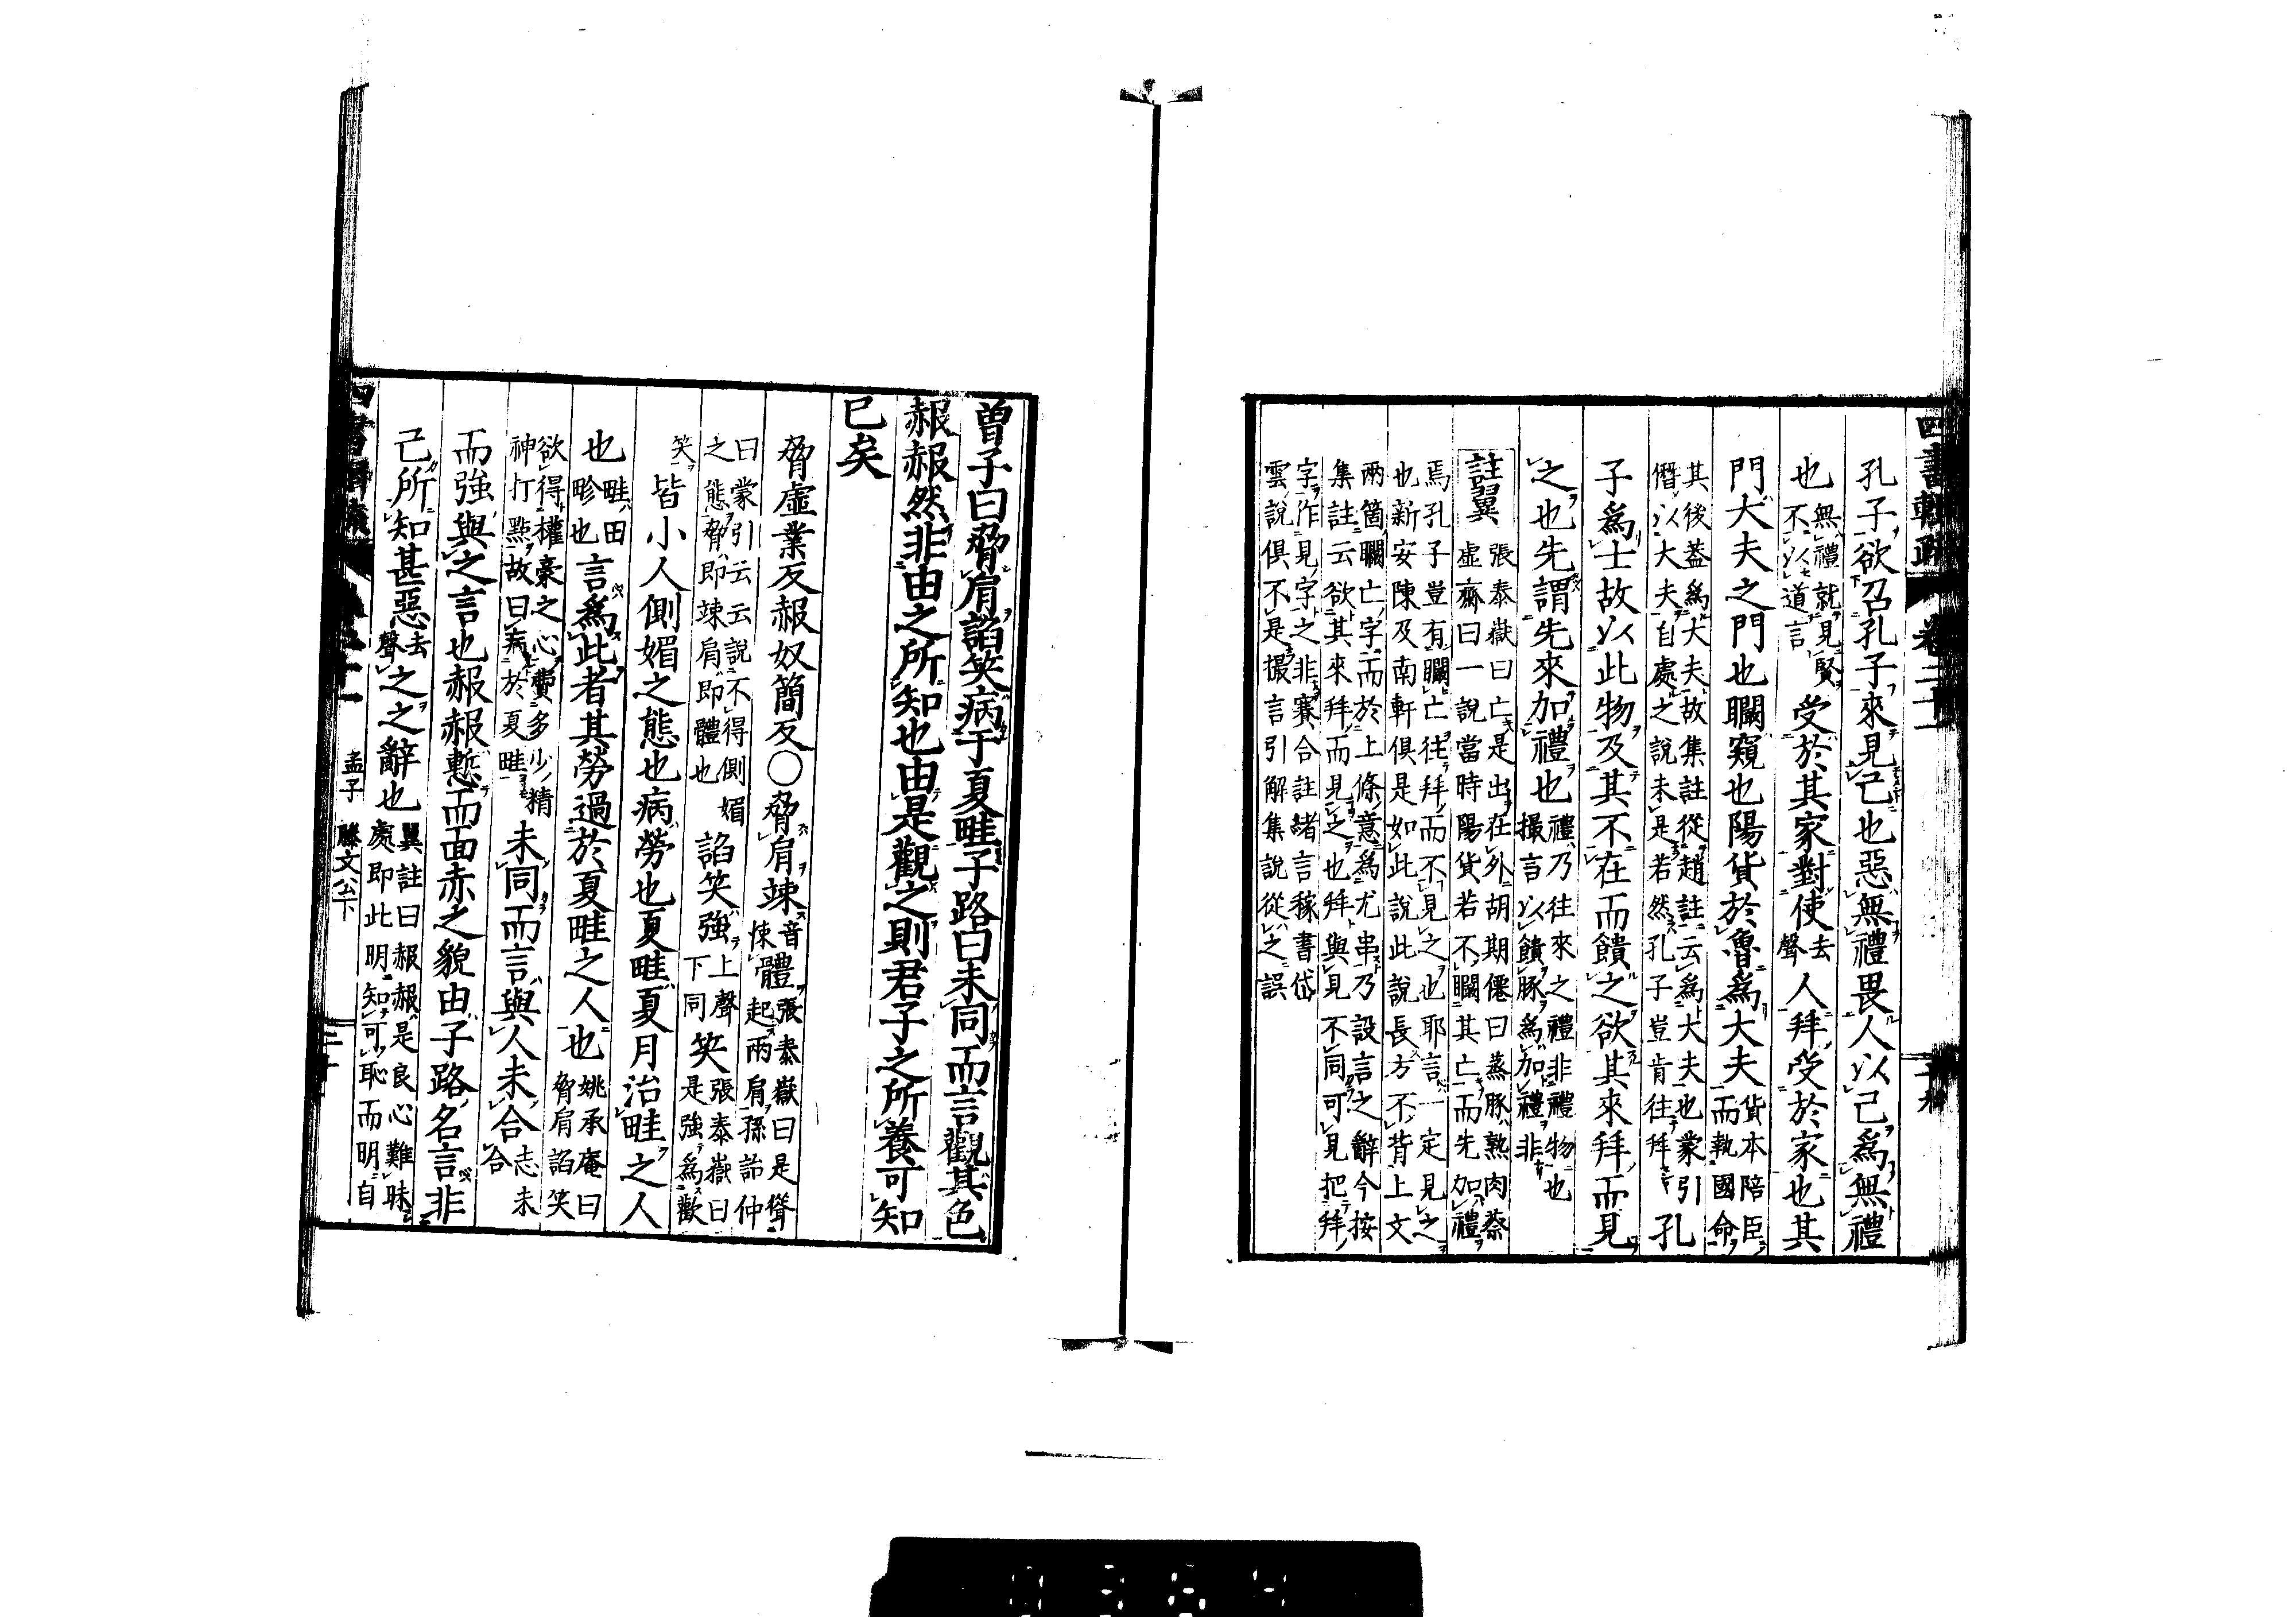 四書輯疏 卷二十一
孔子欲召孔子來見己也惡無禮畏人以己爲無禮
也無禮就見賢不以道言受於其家對使去聲人拜受於家也其
門大夫之門也矙窺也陽貨於魯爲大夫貨本陪臣而執國命
其後蓋爲大夫故集註從趙註云爲大夫也蒙引僭以大夫自處之說未是若然孔子豈肯往拜孔
子爲士故以此物及其不在而饋之欲其來拜而見
之也先謂先來加禮也禮乃往來之禮非禮物也撮言以饋豚爲加禮非
註翼 張泰嶽曰亡是出在外胡期僊曰蒸豚熟肉蔡虛齋曰一說當時陽貨若不矙其亡而先加禮
焉孔子豈有矙亡往拜而不見之也耶言一定見之也新安陳及南軒俱是如此說此說長方不背上文
兩箇矙亡字而於上條意爲尤串乃設言之辭今按集註云欲其來拜而見之也拜與見不同可見把拜
字作見字之非賽合註緒言稼書岱雲說俱不是撮言引解集說從之誤
曾子曰脅肩諂笑病于夏畦子路曰未同而言觀其色
赧赧然非由之所知也由是觀之則君子之所養可知
已矣
脅虛業反赧奴簡反○脅肩竦音悚體張泰嶽曰是聳起兩肩孫詒仲
曰蒙引云云說不得側媚之態脅即竦肩即體也諂笑強上聲下同笑張泰嶽曰是強爲歡
笑皆小人側媚之態也病勞也夏畦夏月治畦之人
也畦田畛也言爲此者其勞過於夏畦之人也姚承庵曰脅肩諂笑
欲得權豪之心費多少精神打點故曰病於夏畦未同而言與人未合志未合
而強與之言也赧赧慙而面赤之貌由子路名言非
己所知甚惡去聲之之辭也翼註曰赧赧是良心難昧處即此明知可恥而明自
孟子 滕文公下